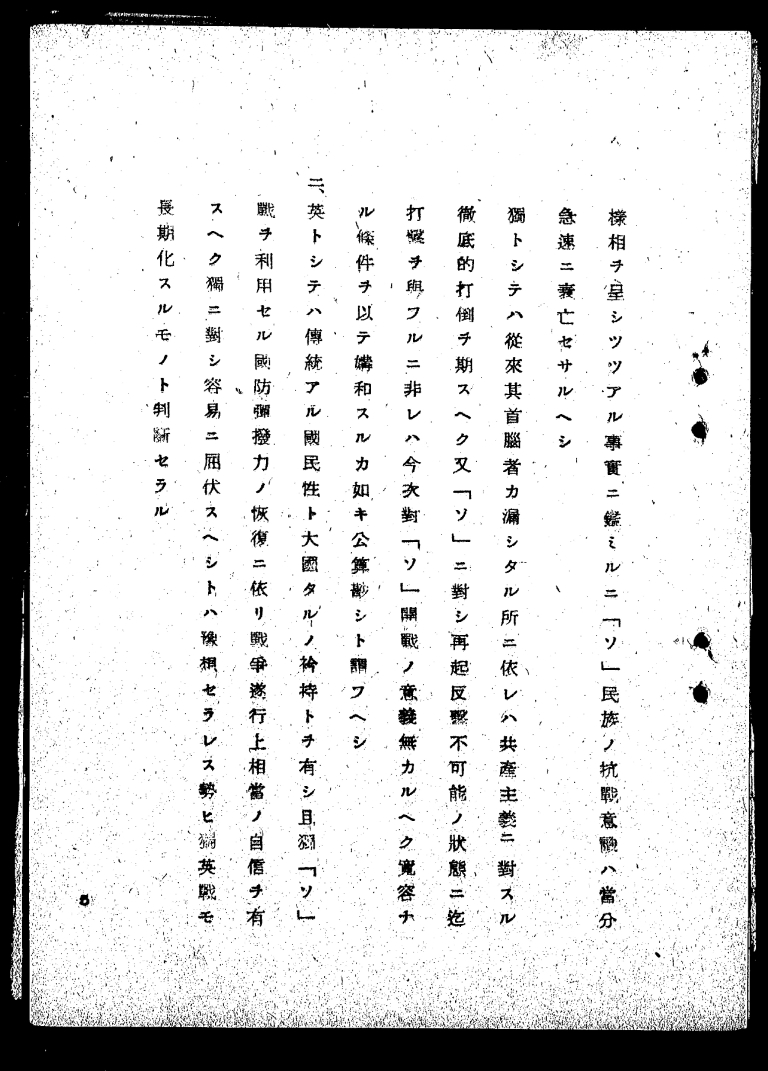 樣相ヲ呈シツツアル事實ニ鑑ミルニ「ソ」民族ノ抗戰意識ハ當分
急速ニ衰亡セサルヘシ
獨トシテハ從來其首腦者カ漏シタル所ニ依レハ共產主義ニ對スル
徹底的打倒ヲ期スヘク又「ソ」ニ對シ再起反擊不可能ノ狀態ニ迄
打擊ヲ與フルニ非レハ今次對「ソ」開戰ノ意義無カルヘク寬容ナ
ル條件ヲ以テ媾和スルカ如キ公算尠シト謂フヘシ
二、英トシテハ傳統アル國民性ト大國タルノ衿持トヲ有シ且獨「ソ」
戰ヲ利用セル國防彈撥力ノ恢復ニ依リ戰爭遂行上相當ノ自信ヲ有
スヘク獨ニ對シ容易ニ屈伏スヘシトハ豫想セラレス勢ヒ獨英戰モ
長期化スルモノト判斷セラル
5